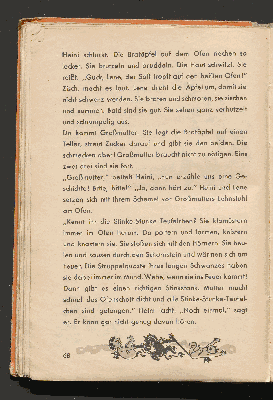 Heini schnarrt. Die Bratäpfel auf dem Ofen riechen so
lecker. Sie brutzeln und brudeln. Die Haut schwitzt. Sie
reißt. „Guck, Lene, der Saft tropft auf den heißen Ofen!"
Zisch, macht es laut. Lene dreht die Äpfel um, damit sie
nicht schwarz werden. Sie braten und schmoren, sie zischen
und summen. Bald sind sie gar. Sie sehen ganz verhutzelt
und schrumpelig aus.
Da kommt Großmutter. Sie legt die Bratäpfel auf einen
Teller, streut Zucker darauf und gibt sie den beiden. Die
schmecken aber! Großmutter braucht nicht zu nötigen. Eins
zwei drei sind sie fort.
„Großmutter," bettelt Heini, „nun erzähle uns eine Ge-
schichte! Bitte, bitte!" „Ja, dann hört zu." Heini und Lene
setzen sich mit ihrem Schemel vor Großmutters Lehnstuhl
am Ofen.
„Kennt ihr die Stinke-Stanke Teufelchen? Sie
immer im Ofen herum. Da poltern und rumoren,
und knastern sie. Sie stoßen sich mit den Hörnern. Sie heu-
len und sausen durch den Schornstein und wärmen sich am
Feuer. Die Struppelquaste ihres langen Schwanzes haben
sie dabei immer im Mund. Wehe, wenn sie ins Feuer kommt!
Dann gibt es einen richtigen Stinkstank. Mutter macht
schnell das Ofenloch dicht und alle Stinke-Stanke-Teufel-
chen sind gefangen." Heini lacht. „Noch einmal," sagt
er. Er kann gar nicht genug davon hören.
68